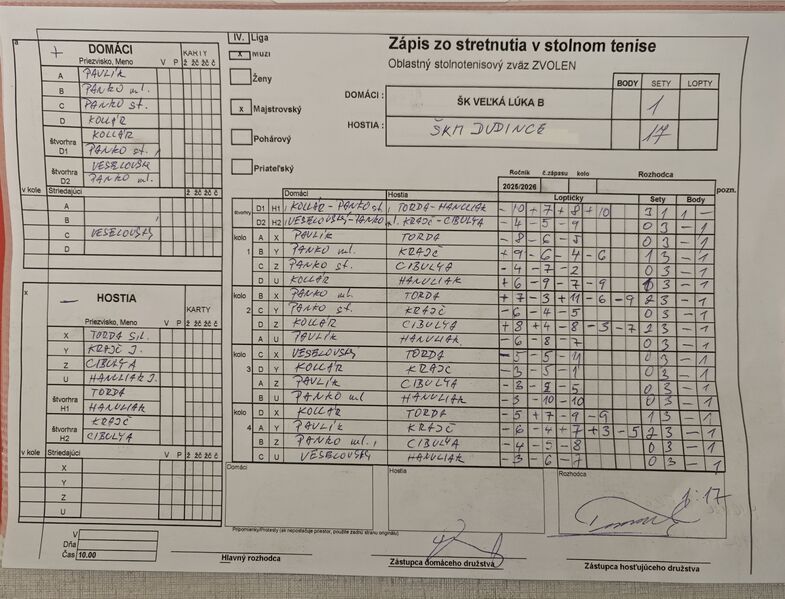 IV. Liga
Zápis zo stretnutia v stolnom tenise
Oblastný stolnotenisový zväz ZVOLEN
x Muži
Ženy
x Majstrovský
Pohárový
Priateľský
BODY SETY LOPTY
DOMÁCI : ŠK VEĽKÁ LÚKA B 1
HOSTIA : ŠKM DUDINCE 17
+ DOMÁCI KARTY
Priezvisko, Meno V P ž žč žč č
A PAVLÍK
B PANKO ml.
C PANKO st.
D KOLLÁR
štvorhra D1 KOLLÁR
PANKO st.
štvorhra D2 VESELOVSKÝ
PANKO ml.
v kole Striedajúci V P ž žč žč č
A
B
C VESELOVSKÝ
D
x
– HOSTIA KARTY
Priezvisko, Meno V P ž žč žč č
X TORDA
Y KRAJČ J.
Z CIBULYA
U HANULIAK J.
štvorhra H1 TORDA
HANULIAK
štvorhra H2 KRAJČ
CIBULYA
v kole Striedajúci V P ž žč žč č
X
Y
Z
U
V
Dňa
Čas 10.00
Ročník č.zápasu kolo Rozhodca
2025/2026
Domáci Hostia Loptičky Sety Body pozn.
štvorhry D1 H1 KOLLÁR - PANKO st. TORDA - HANULIAK - 10 + 7 + 8 + 10 3 1 1 -
D2 H2 VESELOVSKÝ - PANKO CIBULYA - 4 - 5 - 9 0 3 - 1
kolo 1 A X PAVLÍK TORDA - 8 - 6 - 0 3 - 1
B Y PANKO ml. KRAJČ + 9 - 6 - 4 - 6 1 3 - 1
C Z PANKO st. CIBULYA - 4 - 7 - 2 0 3 - 1
D U KOLLÁR HANULIAK + 6 - 9 - 7 - 9 3 - 1
kolo 2 B X PANKO ml. TORDA + 7 - 3 + 11 - 6 - 9 2 3 - 1
C Y PANKO st. KRAJČ - 6 - 4 - 5 0 3 - 1
D Z KOLLÁR CIBULYA + 8 + 4 - 8 - 3 - 7 2 3 - 1
A U PAVLÍK HANULIAK - 6 - 8 - 7 0 3 - 1
kolo 3 C X VESELOVSKÝ TORDA - 5 - 5 - 0 3 - 1
D Y KOLLÁR KRAJČ - 3 - 5 - 1 0 3 - 1
A Z PAVLÍK CIBULYA - 3 - 8 - 5 0 3 - 1
B U PANKO ml HANULIAK - 3 - 10 - 10 0 3 - 1
kolo 4 D X KOLLÁR TORDA - 5 + 7 - 9 - 9 1 3 - 1
A Y PAVLÍK KRAJČ - 6 - 4 + 7 + 3 - 5 2 3 - 1
B Z PANKO ml. CIBULYA - 4 - 5 - 8 0 3 - 1
C U VESELOVSKÝ HANULIAK - 3 - 6 - 7 0 3 - 1
Domáci Hostia Rozhodca
1:17
Pripomienky/Protesty (ak nepostačuje priestor, použite zadnú stranu originálu)
Hlavný rozhodca
Zástupca domáceho družstva
Zástupca hosťujúceho družstva